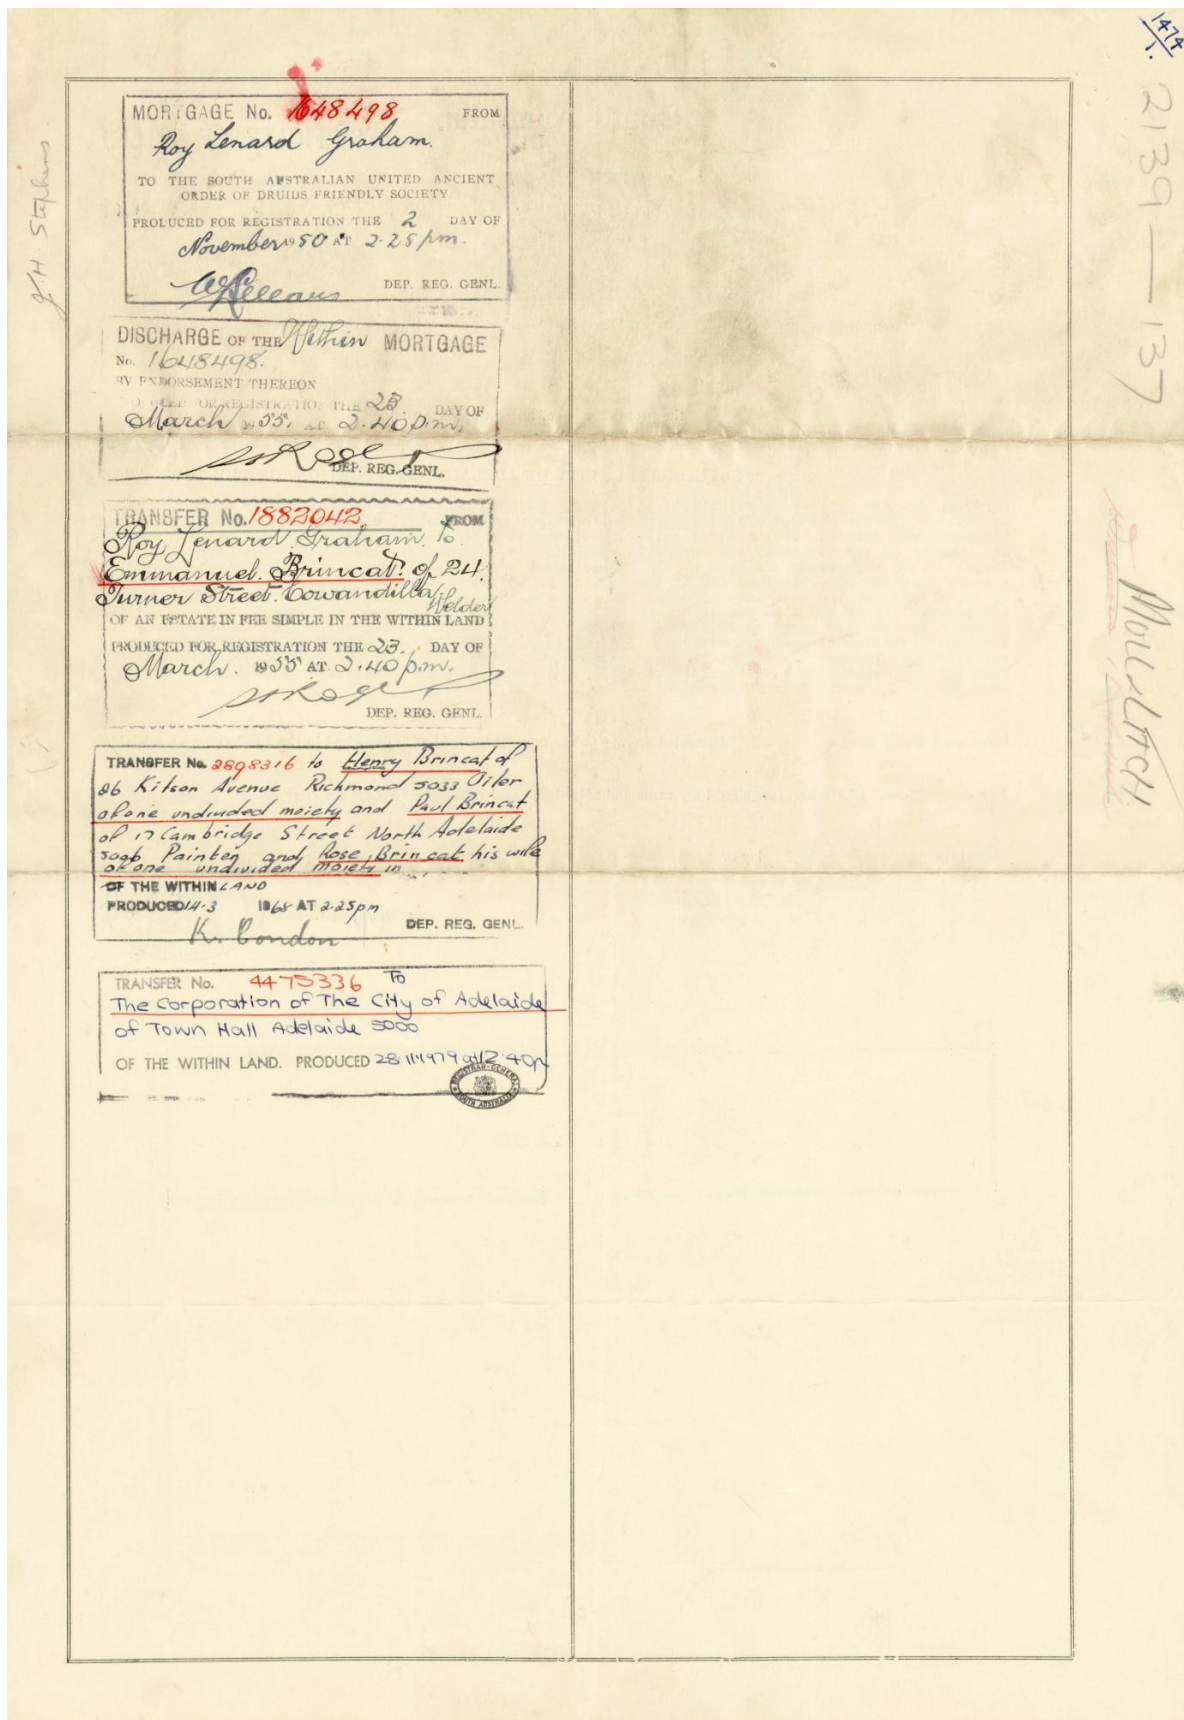 1474
1.
2139 — 137
J. H Stephens
MORTGAGE No. 1648498 FROM
Roy Lenard Graham.
TO THE SOUTH AUSTRALIAN UNITED ANCIENT
ORDER OF DRUIDS FRIENDLY SOCIETY
PRODUCED FOR REGISTRATION THE 2 DAY OF
November 1950 AT 2.25 pm.
DEP. REG. GENL.
DISCHARGE OF THE Within MORTGAGE
No. 1648498.
BY ENDORSEMENT THEREON
PRODUCED FOR REGISTRATION THE 23. DAY OF
March 1955. AT 2.40 p.m.
DEP. REG. GENL.
TRANSFER No. 1882042 FROM
Roy Lenard Graham to
Emmanuel Brincat of 24.
Turner Street Cowandilla
Welder
OF AN ESTATE IN FEE SIMPLE IN THE WITHIN LAND
PRODUCED FOR REGISTRATION THE 23. DAY OF
March. 1955 AT 2.40 p.m.
DEP. REG. GENL.
TRANSFER No. 2898316 to Henry Brincat of
26 Kitson Avenue Richmond 5033 Oiler
of one undivided moiety and Paul Brincat
of 17 Cambridge Street North Adelaide
5006 Painter and Rose Brincat his wife
of one undivided moiety in
OF THE WITHIN LAND
PRODUCED 14.3 1968 AT 2.25pm
K. Condon DEP. REG. GENL.
TRANSFER No. 4475336 TO
The Corporation of The City of Adelaide
of Town Hall Adelaide 5000
OF THE WITHIN LAND. PRODUCED 28 11 1979 at 12.40p
REGISTRAR-GENERAL
SOUTH AUSTRALIA